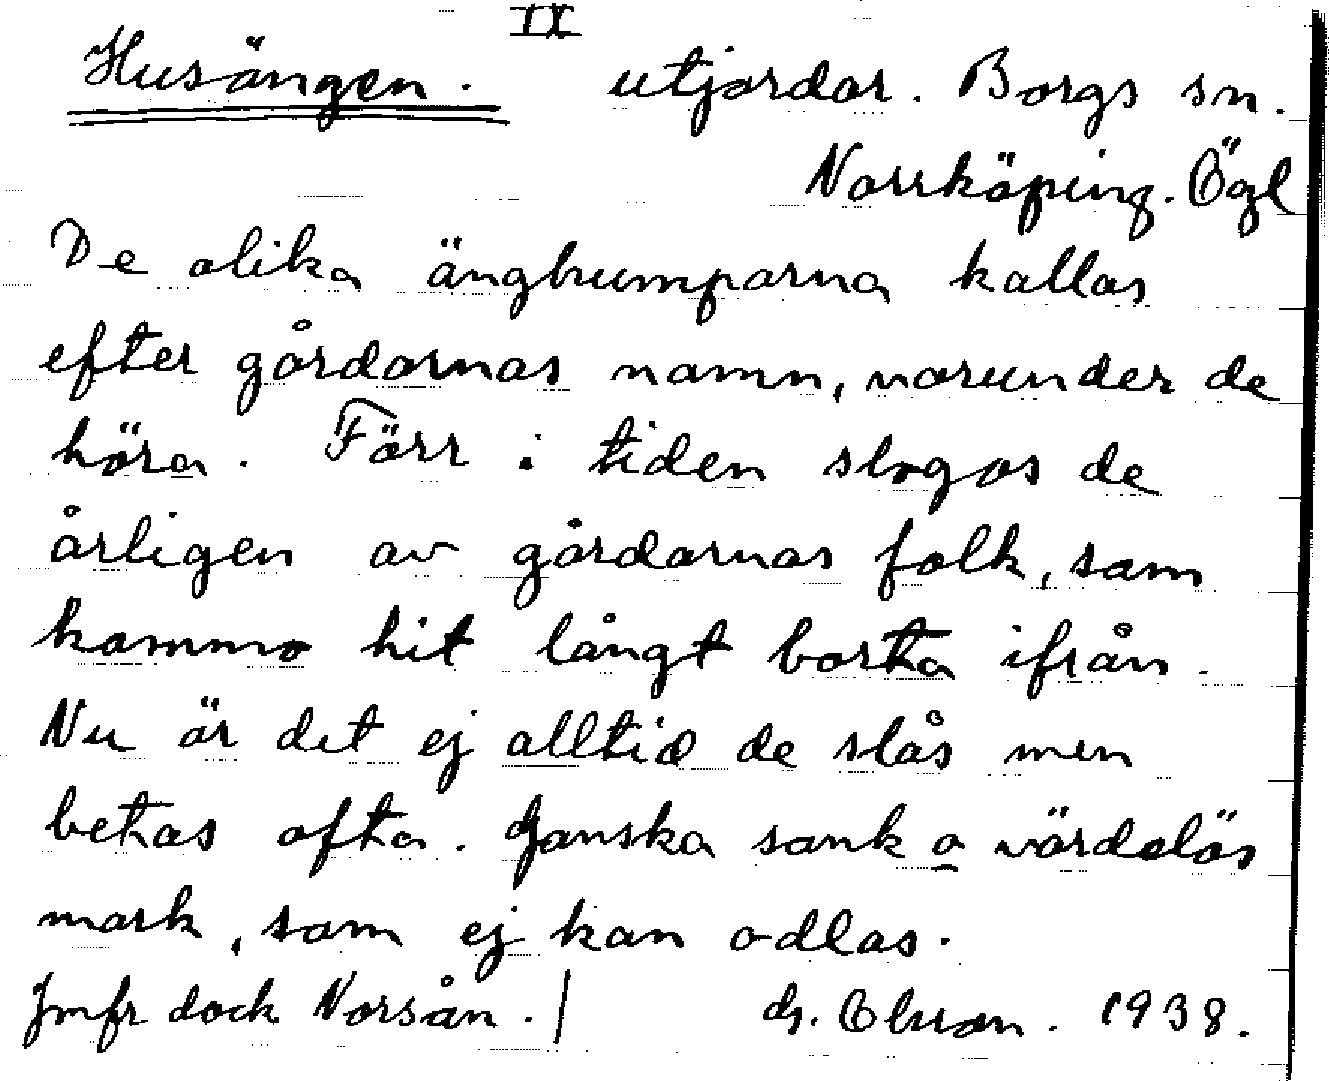 II
Husängen. utjordar. Borgs sn.
Norrköping. Ögl
De olika änghumparna kallas
efter gårdarnas namn, varunder de
höra. Förr i tiden slogos de
årligen av gårdarnas folk, som
kommo hit långt borta ifrån.
Nu är det ej alltid de slås men
betas ofta. Ganska sank o värdelös
mark, som ej kan odlas.
Jmfr dock Norsån. 1938.